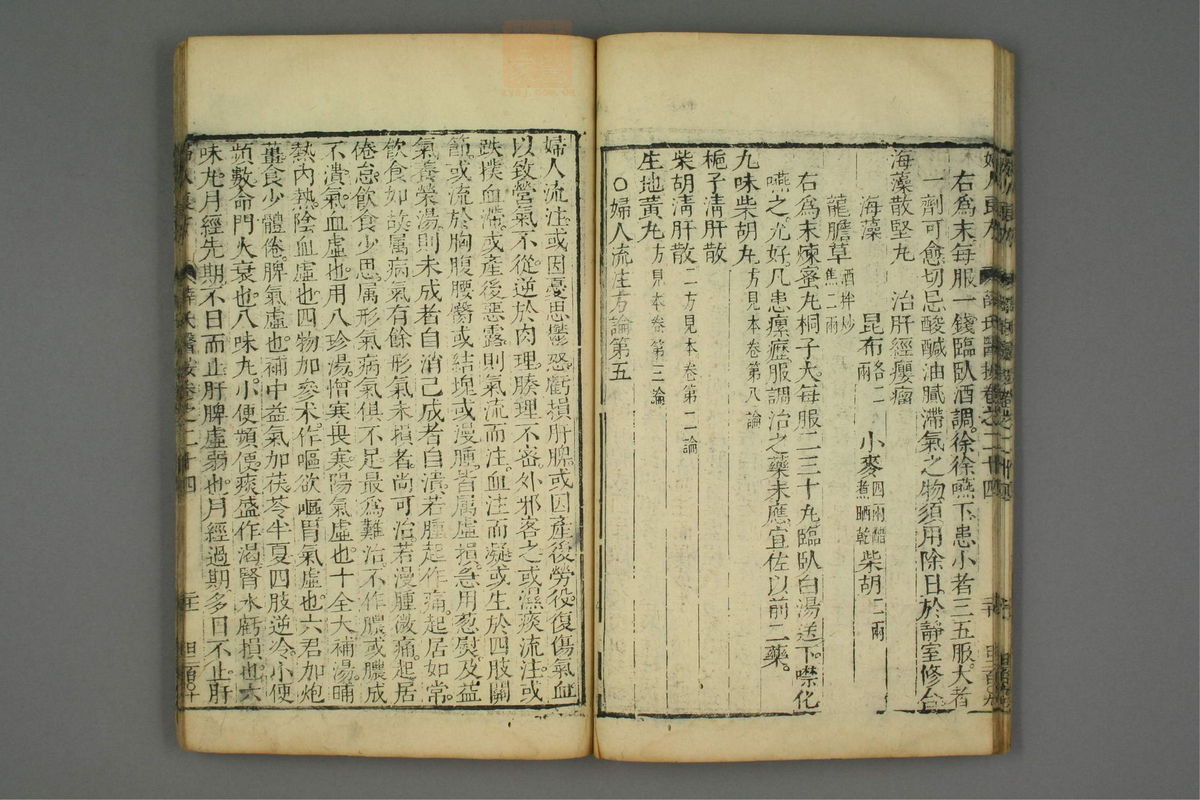 右爲末每服一錢臨臥酒調徐徐嚥下患小者三五服大者
一劑可愈切忌酸鹹油膩滯氣之物須用除日於靜室修合
海藻散堅丸　治肝經癭瘤
海藻　昆布各二兩　小麥四兩醋煮晒乾　柴胡二兩
龍膽草酒拌炒焦二兩
右爲末煉蜜丸桐子大每服二三十丸臨臥白湯送下噙化
嚥之尤好凡患瘰癧服調治之藥未應宜佐以前二藥
九味柴胡丸方見本卷第八論
梔子清肝散
柴胡清肝散二方見本卷第二論
生地黃丸方見本卷第三論
○婦人流注方論第五
婦人流注或因憂思鬱怒虧損肝脾或因產後勞役復傷氣血
以致營氣不從逆於肉理腠理不密外邪客之或濕痰流注或
跌撲血滯或產後惡露則氣流而注血注而凝或生於四肢關
節或流於胸腹腰臀或結塊或漫腫皆属虛損急用葱熨及益
氣養榮湯則未成者自消已成者自潰若腫起作痛起居如常
飲食如故属病氣有餘形氣未損者尚可治若漫腫微痛起居
倦怠飲食少思属形氣病氣俱不足最爲難治不作膿或膿成
不潰氣血虛也用八珍湯憎寒畏寒陽氣虛也十全大補湯晡
熱內熱陰血虛也四物加參术作嘔欲嘔胃氣虛也六君加炮
薑食少體倦脾氣虛也補中益氣加茯苓半夏四肢逆冷小便
頻數命門火衰也八味丸小便頻便痰盛作渴腎水虧損也六
味丸月經先期不日而止肝脾虛弱也月經過期多日不止肝